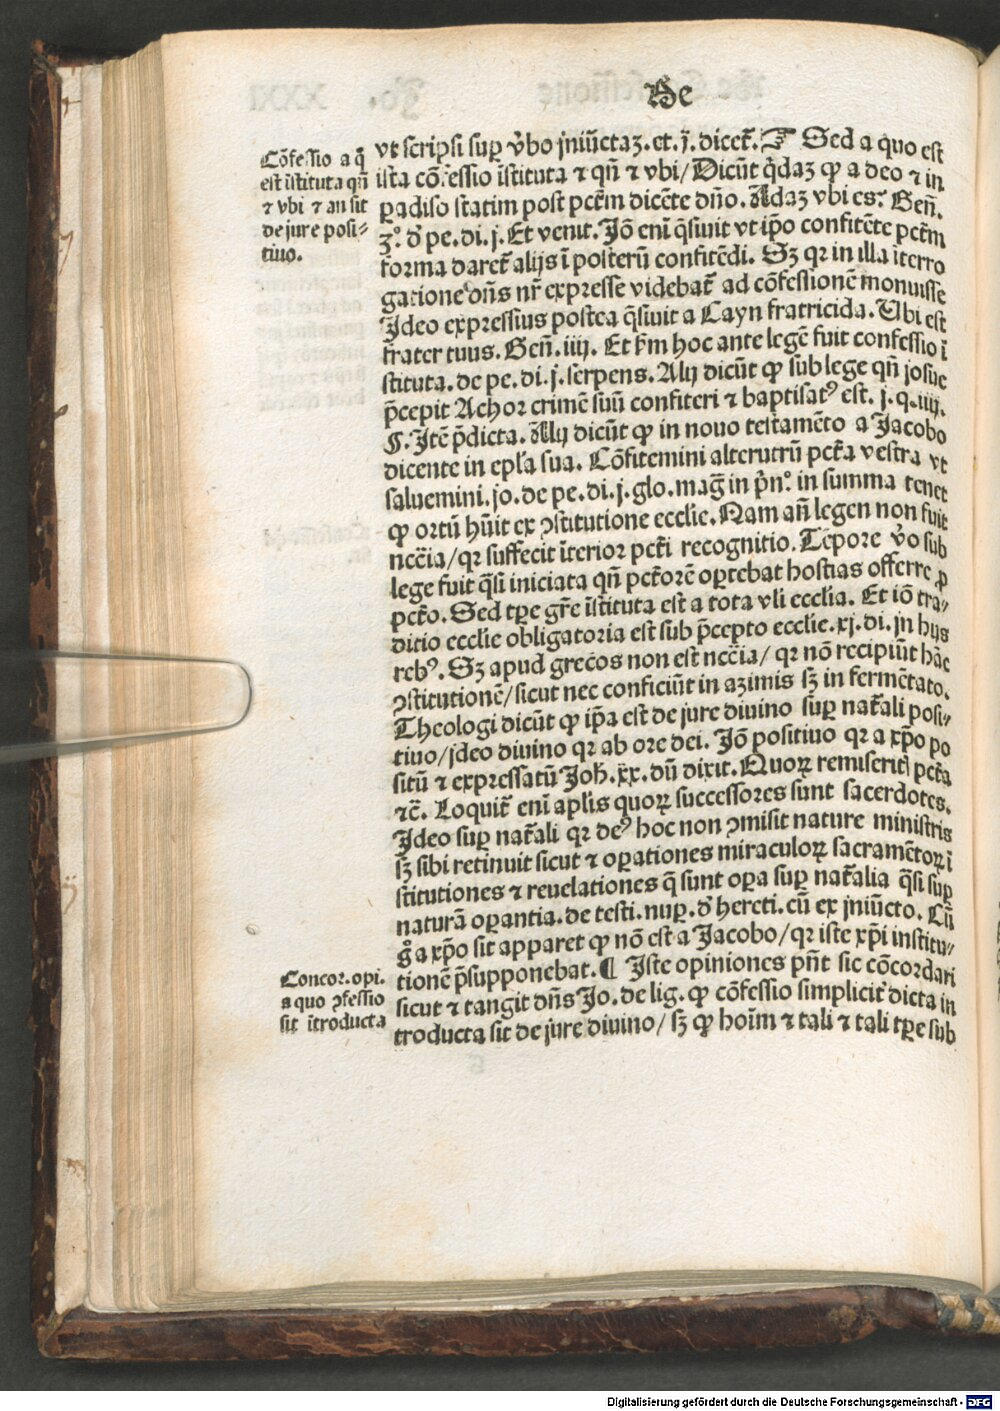 De
Cōfessio a q̄
est īstituta qn̄
⁊ vbi ⁊ an sit
de jure posi⸗
tiuo.
vt scripsi suꝑ v̓bo jniūctaꝫ. et. j̄. dicet̄. ¶ Sed a quo est
ista cōfessio īstituta ⁊ qn̄ ⁊ vbi/ Dicūt q̄daꝫ ꝙ a deo ⁊ in
ꝑadiso statim post pctm̄ dicēte dn̄o. Adaꝫ vbi es? Geń.
ꝫ°. d̓ pe. di. j. Et venit. Jō eni q̄siuit vt ip̄o confitēte pctm̄
forma daret̄ alijs ī posterū confitēdi. Sꝫ qr in illa īterro
gatione dn̄s nr̄ expresse videbat̄ ad cōfessionē monuisse
Jdeo expressius postea q̄siuit a Cayn fratricida. Vbi est
frater tuus. Geń. iiij. Et fm hoc ante legē fuit confessio ī
stituta. de pe. di. j. serpens. Alij dicūt ꝙ sub lege qn̄ josue
p̄cepit Achor crimē suū confiteri ⁊ baptisatꝰ est. j. q. iiij.
§. Jtē p̄dicta. Alij dicūt ꝙ in nouo testamēto a Jacobo
dicente in epl̄a sua. Cōfitemini alterutrū pctā vestra vt
saluemini. jo. de pe. di. j. glo. mag̅ in pn̓°. in summa tenet
ꝙ ortū hūit ex ꝯstitutione ecclīe. Nam an̄ legen non fuit
nccīa/ qr suffecit īterior pctī recognitio. Tēpore v̓o sub
lege fuit q̄si iniciata qn̄ pctōrē oꝑtebat hostias offerre ꝓ
pctō. Sed tꝑe gr̄e īstituta est a tota vl̄i ecclīa. Et iō tra⸗
ditio ecclīe obligatoria est sub p̄cepto ecclīe. xj. di. jn hijs
rebꝰ. Sꝫ apud grecos non est nccīa/ qr nō recipiūt hāc
ꝯstitutionē/ sicut nec conficiūt in azimis sꝫ in fermētato.
Theologi dicūt ꝙ ip̄a est de jure diuino suꝑ nat̄ali posi⸗
tiuo/ jdeo diuino qr ab ore dei. Jō positiuo qr a xp̄o po
situ ⁊ expressatū Joh̄. xx. dū dixit. Quoꝝ remiserit̄ pctā
⁊c̄. Loquit̄ eni apl̄is quoꝝ successores sunt sacerdotes.
Jdeo suꝑ nat̄ali qr deꝰ hoc non ꝯmisit nature ministris
sꝫ sibi retinuit sicut ⁊ oꝑationes miraculoꝝ sacramētoꝝ ī
stitutiones ⁊ reuelationes q̄ sunt oꝑa suꝑ nat̄alia q̄si suꝑ
naturā oꝑantia. de testi. nuꝑ. d̓ hereti. cū ex jniūcto. Cū
g̊ a xp̄o sit apparet ꝙ nō est a Jacobo/ qr iste xp̄i institu⸗
tionē p̄supponebat. ¶ Jste opiniones pn̄t sic cōcordari
sicut ⁊ tangit dn̄s Jo. de lig. ꝙ cōfessio simplicit̓ dicta in
troducta sit de jure diuino/ sꝫ ꝙ hoīm ⁊ tali ⁊ tali tꝑe sub
Concor. opi.
a quo ꝯfessio
sit ītroducta
Digitalisierung gefördert durch die Deutsche Forschungsgemeinschaft - DFG